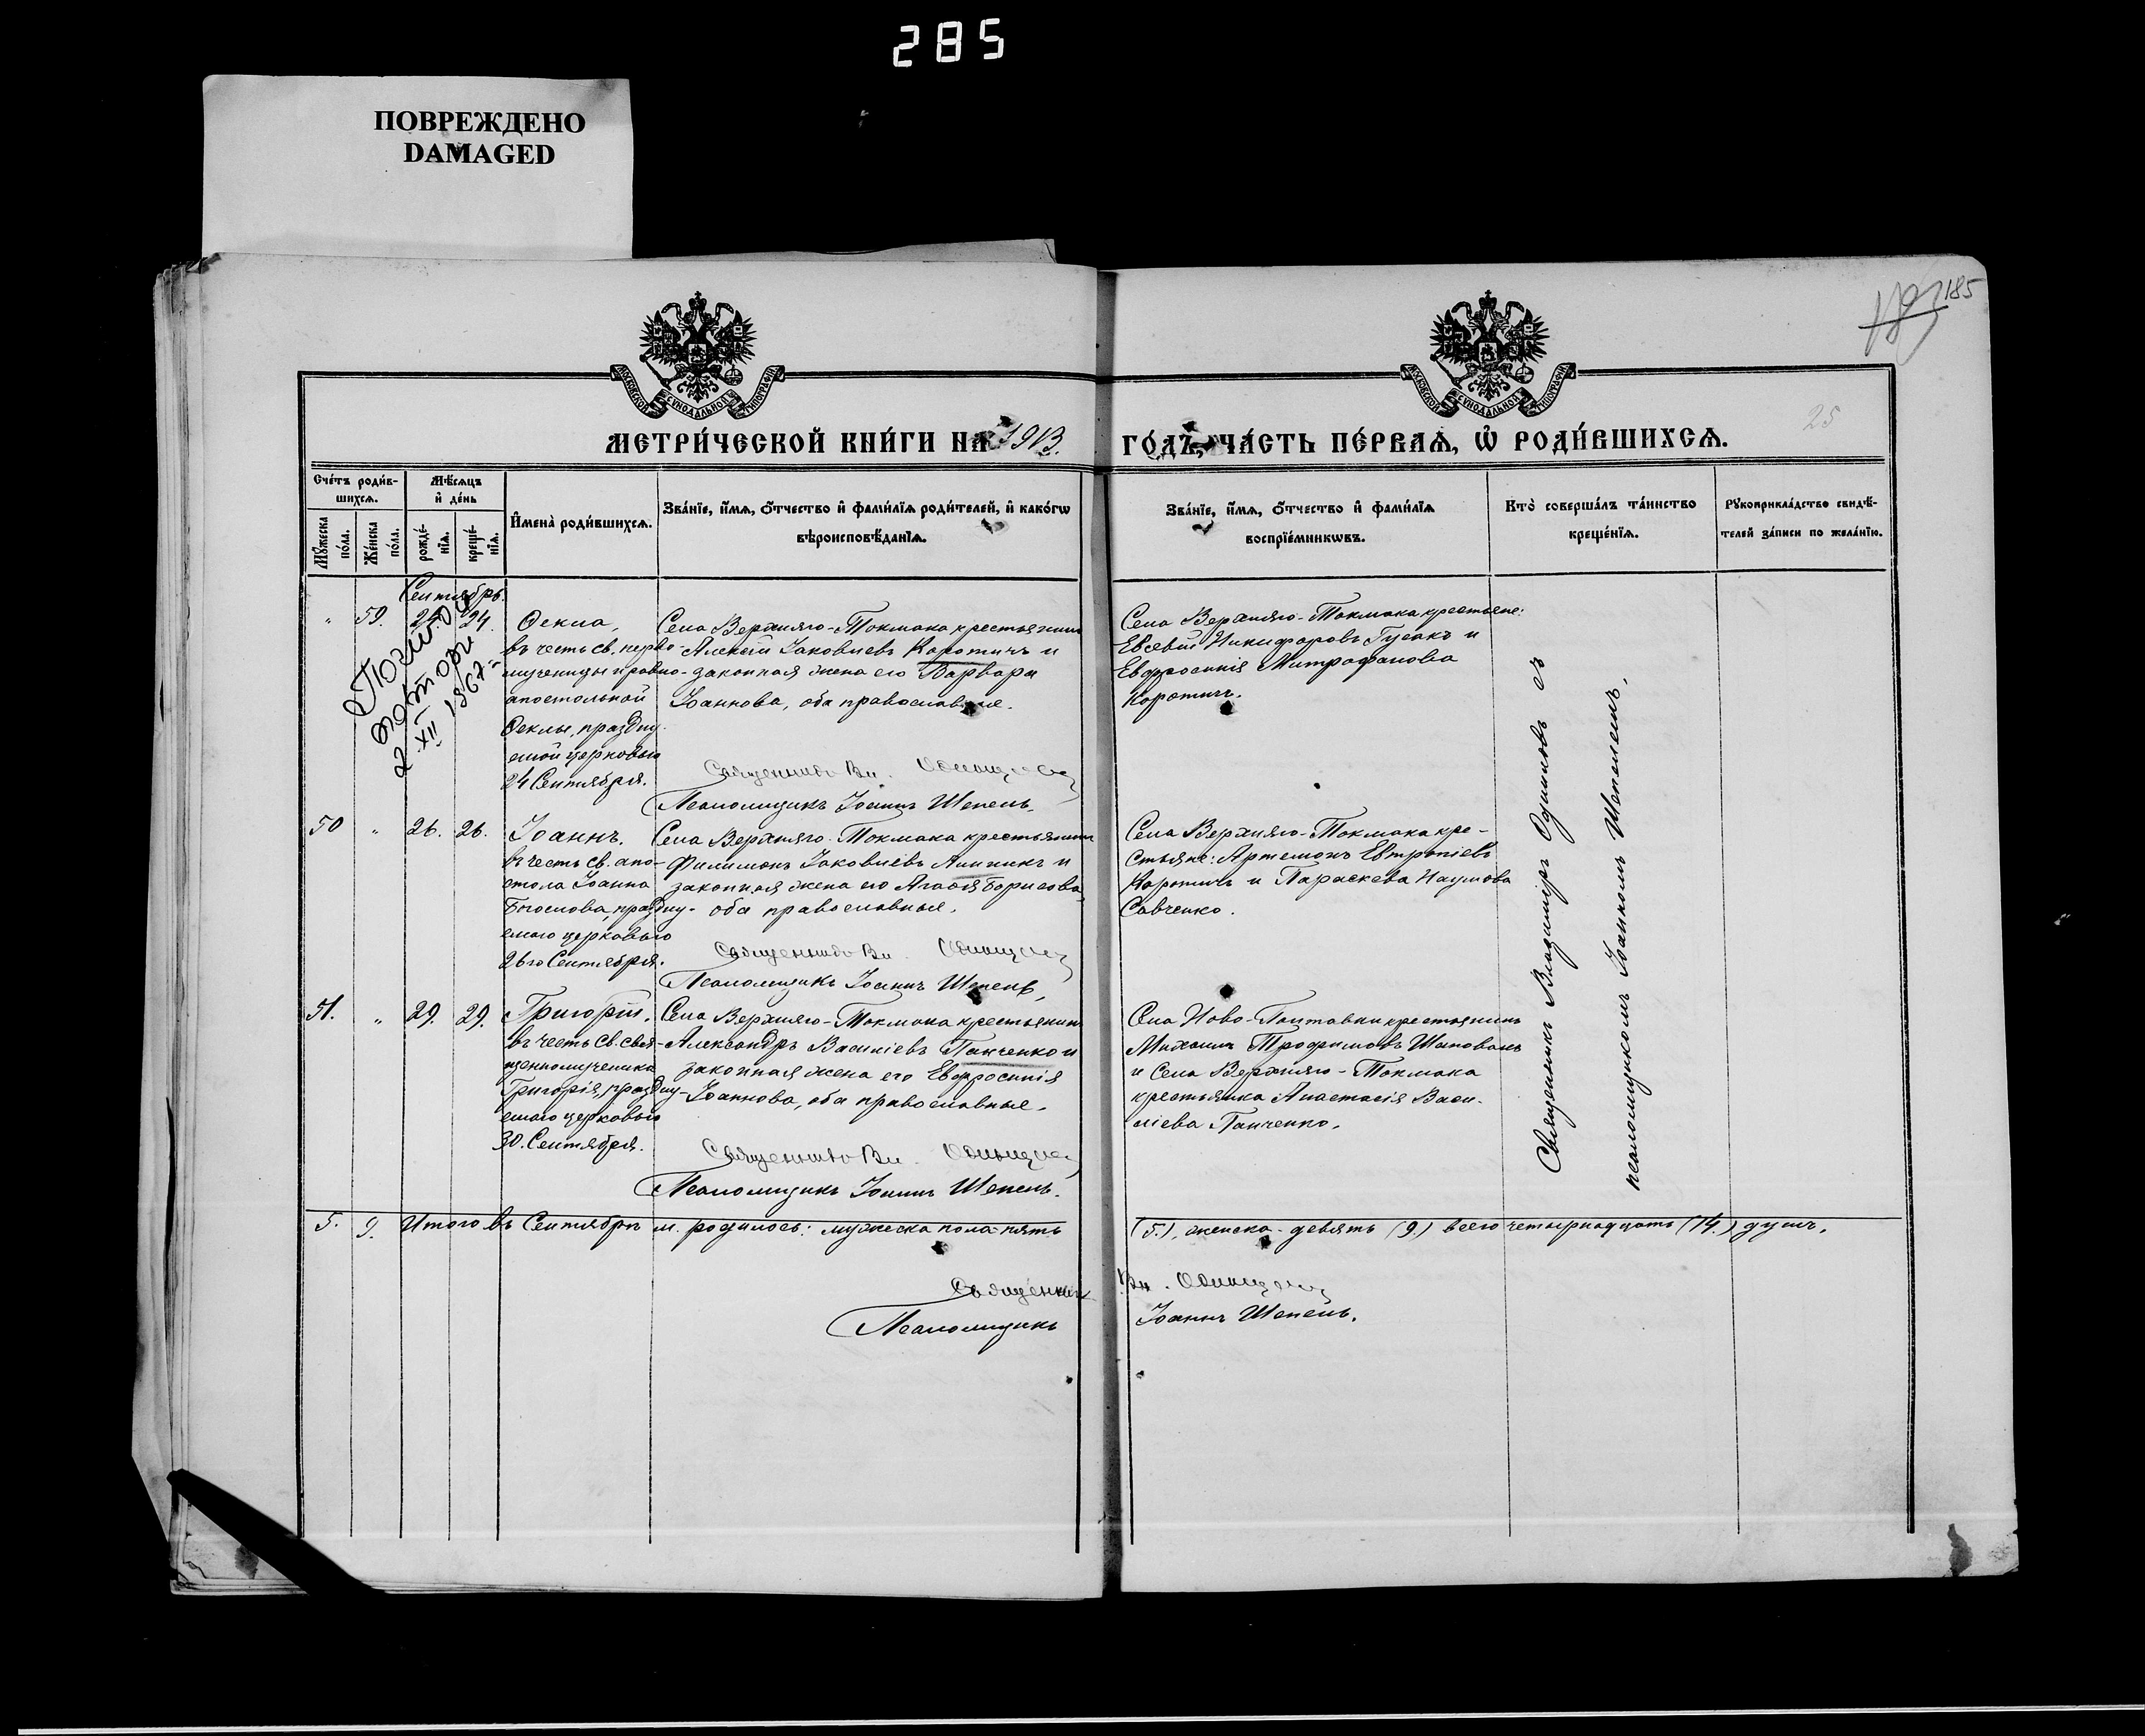 285
ПОВРЕЖДЕНО
DAMAGED
185
25
МОСКОВСКОЙ СѴНОДАЛЬНОЙ ТИПОГРАФІИ
МОСКОВСКОЙ СѴНОДАЛЬНОЙ ТИПОГРАФІИ
МЕТРИ́ЧЕСКОЙ КНИ́ГИ НА 1913. ГО́ДЪ, ЧА́СТЬ ПЕ́РВАѦ, Ѡ҆ РОДИ́ВШИХСѦ.
Сче́тъ роди́в-
шихсѧ.
Мѣ́сѧцъ
и҆ де́нь
Мꙋ́жеска
по́ла.
Же́нска
по́ла.
рожде́-
нїѧ.
креще́-
нїѧ.
И҆мена̀ роди́вшихсѧ.
Зва́нїе, и҆́мѧ, ѻ҆́тчество и҆ фами́лїѧ роди́телей, и҆ како́гѡ
вѣроисповѣ́данїѧ.
Зва́нїе, и҆́мѧ, ѻ҆́тчество и҆ фами́лїѧ
воспрїе́мникѡвъ.
Кто̀ соверша́лъ та́инство
креще́нїѧ.
Рꙋкоприкла́дство свидѣ́-
телей за́писи по жела́нїю.
Сентябрь.
" 59. 24. 24.
Ѳекла,
въ честь св. перво-
мученицы и равно-
апостольной
Ѳеклы, праздну-
емой церковью
24 Сентября.
Села Верхняго-Токмака крестьянинъ
Алексѣй Іаковлевъ Коротичъ и
законная жена его Варвара
Іоаннова, оба православные.
Священникъ Вл. Одинцовъ
Псаломщикъ Іоаннъ Шепель.
Села Верхняго-Токмака крестьяне:
Евсевій Никифоровъ Гусакъ и
Евфросинія Митрофанова
Коротичъ.
повтори
2 XII 1967 г.
50 " 26. 26.
Іоаннъ.
въ честь св. апо-
стола Іоанна
Богослова, праздну-
емаго церковью
26го Сентября.
Села Верхняго-Токмака крестьянинъ
Филимонъ Іаковлевъ Липникъ и
законная жена его Агаѳія Борисова,
оба православные.
Священникъ Вл. Одинцовъ
Псаломщикъ Іоаннъ Шепель,
Села Верхняго-Токмака кре-
стьяне: Артемонъ Евтропіевъ
Коротичъ и Параскева Наумова
Савченко.
51. " 29. 29.
Григорій.
въ честь св. свя-
щенномученика
Григорія, праздну-
емаго церковью
30. Сентября.
Села Верхняго-Токмака крестьянинъ
Александръ Василіевъ Панченко и
законная жена его Евфросинія
Іоаннова, оба православные.
Священникъ Вл. Одинцовъ
Псаломщикъ Іоаннъ Шепель.
Села Ново-Полтавки крестьянинъ
Михаилъ Трофимовъ Шаповалъ
и Села Верхняго-Токмака
крестьянка Анастасія Васи-
ліева Панченко.
Священникъ Владиміръ Одинцовъ съ
псаломщикомъ Іоанномъ Шепелемъ.
5. 9. Итого въ Сентябрѣ м. родилось: мужеска пола пять (5.), женска - девять (9.) всего четырнадцать (14.) душъ.
Священникъ Вл. Одинцовъ
Псаломщикъ Іоаннъ Шепель.